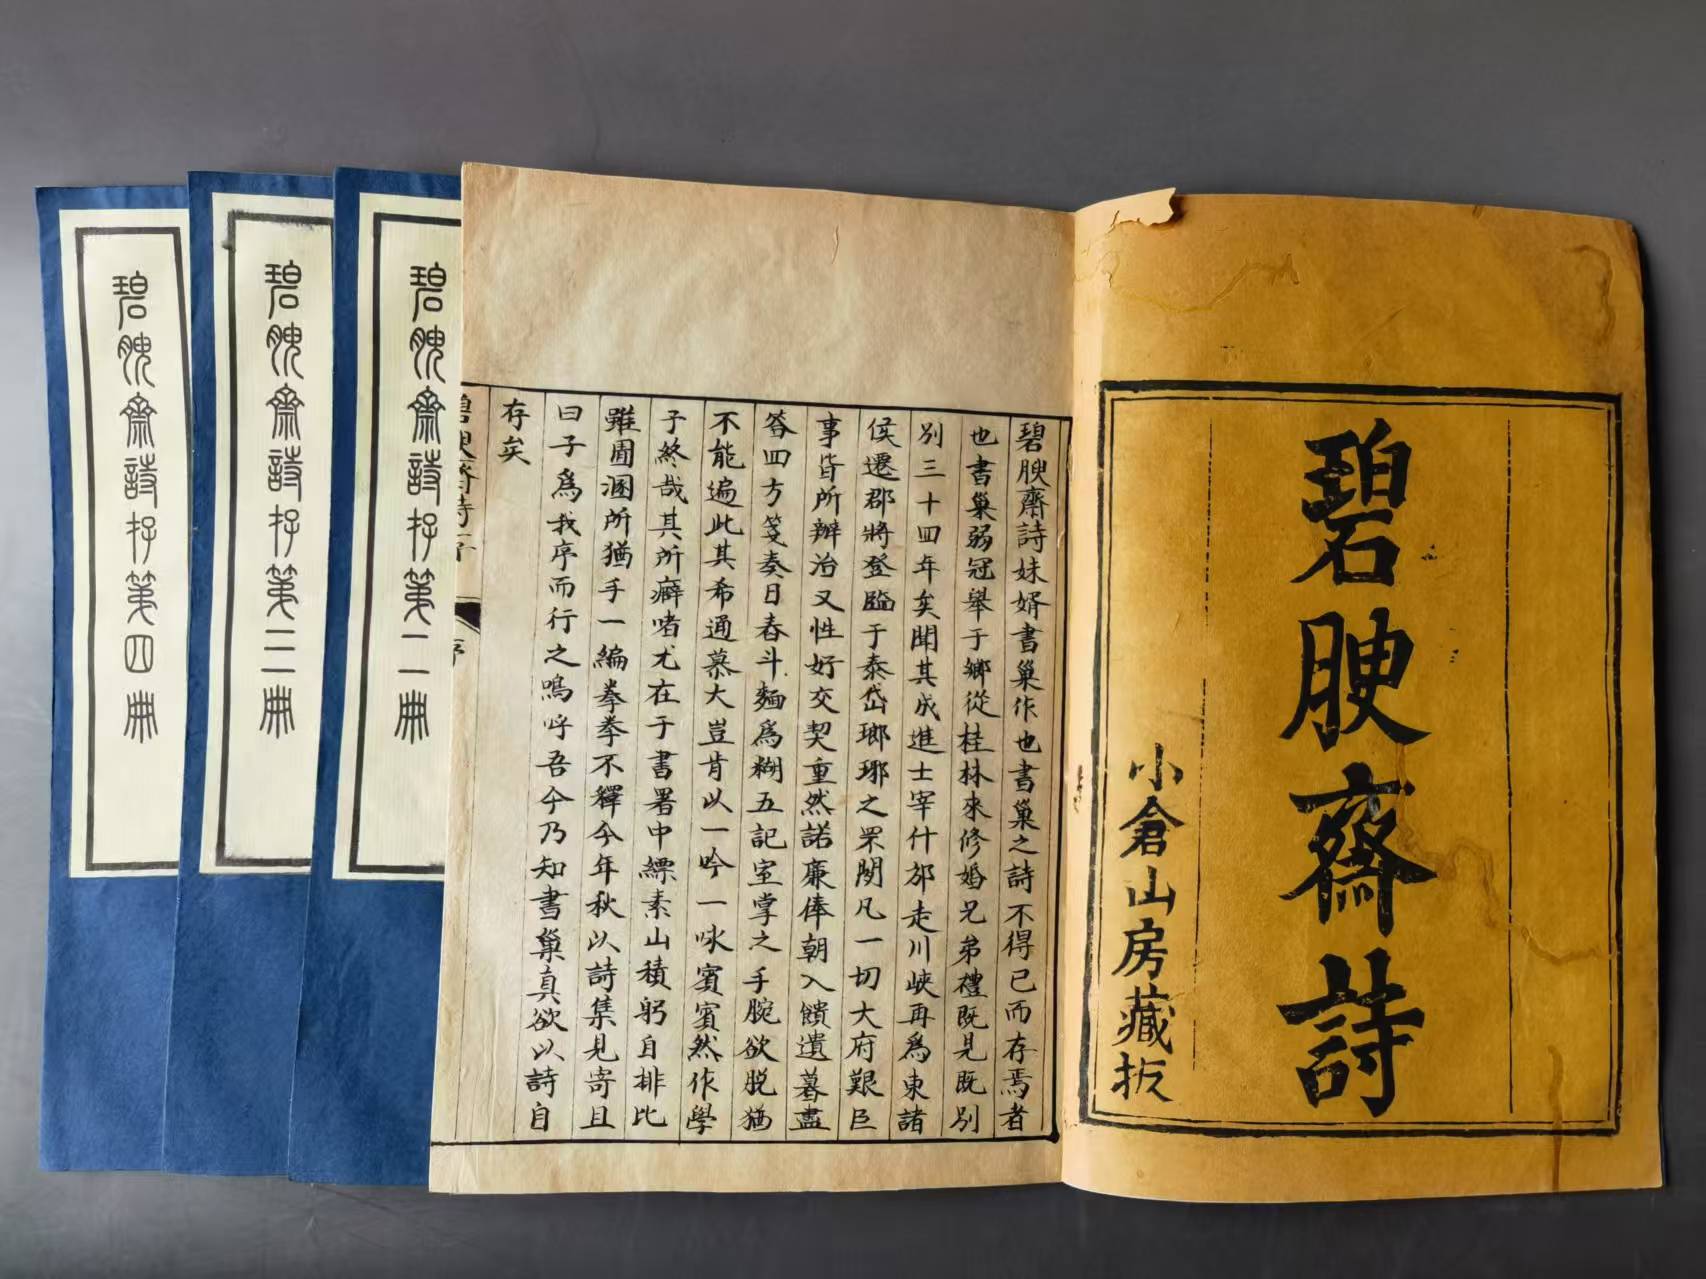 碧腴齋詩
小倉山房藏板
碧腴齋詩妹婿書巢作也書巢之詩不得已而存焉者
也書巢弱冠舉于鄉從桂林來修婚兄弟禮既見既別
別三十四年矣聞其成進士宰什邡走川峽再為東諸
侯遷郡將登臨于泰岱瑯琊之眾閱凡一切大府艱巨
事皆所辦治又性好交契重然諾廉俸朝入饋遺暮盡
答四方箋奏日舂斗麵為糊五記室掌之手腕欲脫猶
不能遍此其希通慕大豈肯以一吟一咏賓賓然作學
子終哉其所癖嗜尤在于書署中縹素山積躬自排比
雖圊溷所猶手一編拳拳不釋今年秋以詩集見寄且
曰子為我序而行之嗚呼吾今乃知書巢真欲以詩自
存矣
碧腴齋詩序
序
碧腴齋詩存第二冊
碧腴齋詩存第三冊
碧腴齋詩存第四冊